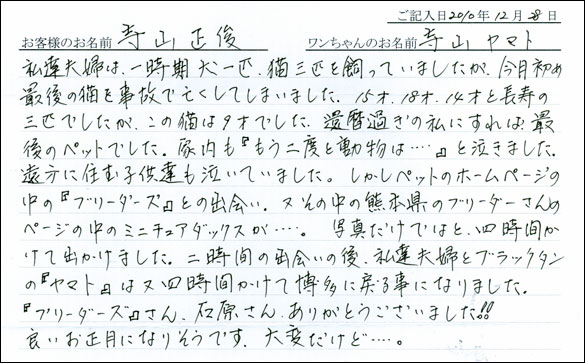 ご記入日2010年12月28日
お客様のお名前 寺山正俊 ワンちゃんのお名前 寺山ヤマト
私達夫婦は、一時期犬一匹、猫三匹を飼っていましたが、今月初め
最後の猫を事故で亡くしてしまいました。15才、18才、14才と長寿の
三匹でしたが、この猫は9才でした。還暦過ぎの私にすれば最
後のペットでした。家内も『もう二度と動物は…。』と泣きました。
遠方に住む子供達も泣いていました。しかしペットのホームページの
中の『ブリーダーズ』との出会い、又その中の熊本県のブリーダーさんの
ページの中のミニチュアダックスが…。写真だけではと、四時間か
けて出かけました。二時間の出会いの後、私達夫婦とブラックタン
の『ヤマト』は又四時間かけて博多に戻る事になりました。
『ブリーダーズ』さん、石原さん、ありがとうございました!!
良いお正月になりそうです、大変だけど…。